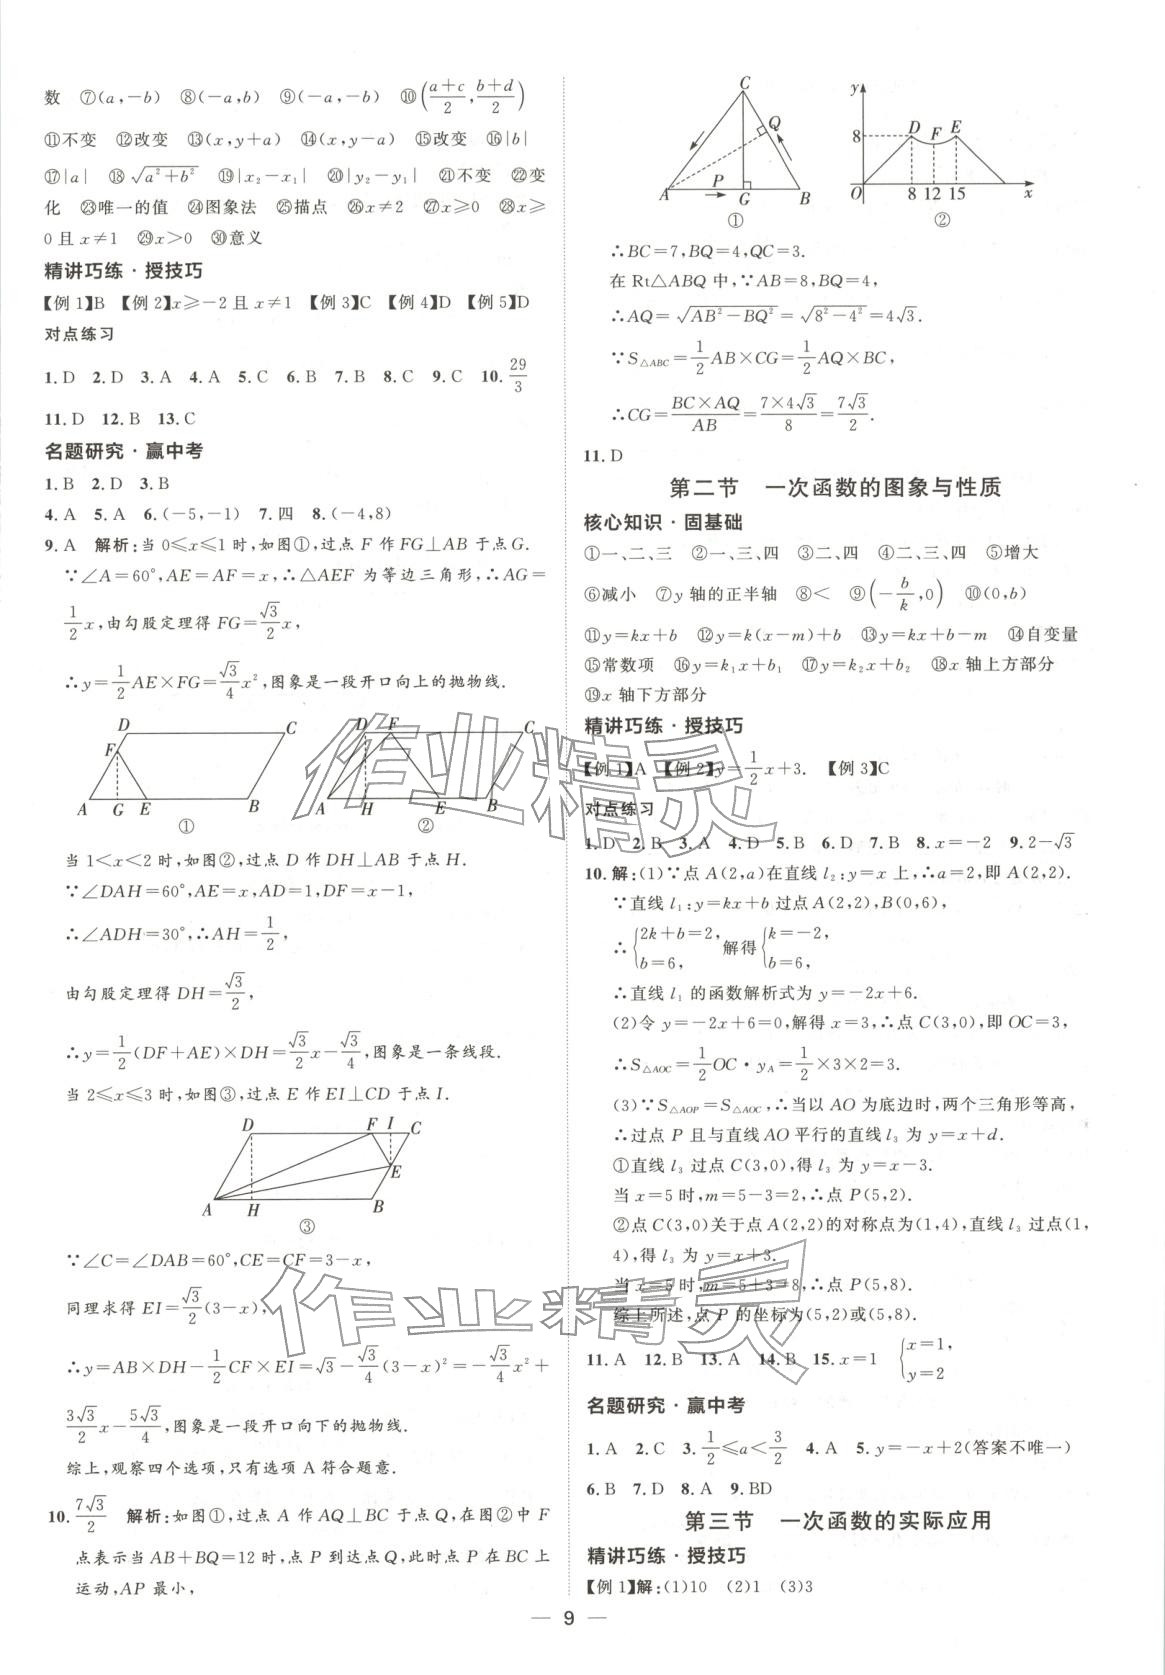 数 ⑦(a,-b) ⑧(-a,b) ⑨(-a,-b) ⑩((a+c)/2,(b+d)/2)
⑪不变 ⑫改变 ⑬(x,y+a) ⑭(x,y-a) ⑮改变 ⑯|b|
⑰|a| ⑱√(a²+b²) ⑲|x₂-x₁| ⑳|y₂-y₁| ㉑不变 ㉒变
化 ㉓唯一的值 ㉔图象法 ㉕描点 ㉖x≠2 ㉗x≥0 ㉘x≥
0且x≠1 ㉙x>0 ㉚意义
精讲巧练·授技巧
【例1】B 【例2】x≥-2且x≠1 【例3】C 【例4】D 【例5】D
对点练习
1.D 2.D 3.A 4.A 5.C 6.B 7.B 8.C 9.C 10.29/3
11.D 12.B 13.C
名题研究·赢中考
1.B 2.D 3.B
4.A 5.A 6.(-5,-1) 7.四 8.(-4,8)
9.A 解析:当0≤x≤1时,如图①,过点F作FG⊥AB于点G.
∵∠A=60°,AE=AF=x,∴△AEF为等边三角形,∴AG=
1/2x,由勾股定理得FG=√3/2x,
∴y=1/2AE×FG=√3/4x²,图象是一段开口向上的抛物线.
D C F A G E B ①
D F C A H E B ②
当1<x<2时,如图②,过点D作DH⊥AB于点H.
∵∠DAH=60°,AE=x,AD=1,DF=x-1,
∴∠ADH=30°,∴AH=1/2,
由勾股定理得DH=√3/2,
∴y=1/2(DF+AE)×DH=√3/2x-√3/4,图象是一条线段.
当2≤x≤3时,如图③,过点E作EI⊥CD于点I.
D F I C E A H B ③
∵∠C=∠DAB=60°,CE=CF=3-x,
同理求得EI=√3/2(3-x),
∴y=AB×DH-1/2CF×EI=√3-√3/4(3-x)²=-√3/4x²+
3√3/2x-5√3/4,图象是一段开口向下的抛物线.
综上,观察四个选项,只有选项A符合题意.
10.7√3/2 解析:如图①,过点A作AQ⊥BC于点Q,在图②中F
点表示当AB+BQ=12时,点P到达点Q,此时点P在BC上
运动,AP最小,
C Q A P G B ①
y D F E 8 O 8 12 15 x ②
∴BC=7,BQ=4,QC=3.
在Rt△ABQ中,∵AB=8,BQ=4,
∴AQ=√(AB²-BQ²)=√(8²-4²)=4√3.
∵S△ABC=1/2AB×CG=1/2AQ×BC,
∴CG=(BC×AQ)/AB=(7×4√3)/8=7√3/2.
11.D
第二节 一次函数的图象与性质
核心知识·固基础
①一、二、三 ②一、三、四 ③二、四 ④二、三、四 ⑤增大
⑥减小 ⑦y轴的正半轴 ⑧< ⑨(-b/k,0) ⑩(0,b)
⑪y=kx+b ⑫y=k(x-m)+b ⑬y=kx+b-m ⑭自变量
⑮常数项 ⑯y=k₁x+b₁ ⑰y=k₂x+b₂ ⑱x轴上方部分
⑲x轴下方部分
精讲巧练·授技巧
【例1】A 【例2】y=1/2x+3. 【例3】C
对点练习
1.D 2.B 3.A 4.D 5.B 6.D 7.B 8.x=-2 9.2-√3
10.解:(1)∵点A(2,a)在直线l₂:y=x上,∴a=2,即A(2,2).
∵直线l₁:y=kx+b过点A(2,2),B(0,6),
∴{2k+b=2, b=6, 解得{k=-2, b=6,
∴直线l₁的函数解析式为y=-2x+6.
(2)令y=-2x+6=0,解得x=3,∴点C(3,0),即OC=3,
∴S△AOC=1/2OC·yA=1/2×3×2=3.
(3)∵S△AOP=S△AOC,∴当以AO为底边时,两个三角形等高,
∴过点P且与直线AO平行的直线l₃为y=x+d.
①直线l₃过点C(3,0),得l₃为y=x-3.
当x=5时,m=5-3=2,∴点P(5,2).
②点C(3,0)关于点A(2,2)的对称点为(1,4),直线l₃过点(1,
4),得l₃为y=x+3.
当x=5时,m=5+3=8,∴点P(5,8).
综上所述,点P的坐标为(5,2)或(5,8).
11.A 12.B 13.A 14.B 15.x=1 {x=1, y=2
名题研究·赢中考
1.A 2.C 3.1/2≤a<3/2 4.A 5.y=-x+2(答案不唯一)
6.B 7.D 8.A 9.BD
第三节 一次函数的实际应用
精讲巧练·授技巧
【例1】解:(1)10 (2)1 (3)3
— 9 —
作业精灵
作业精灵